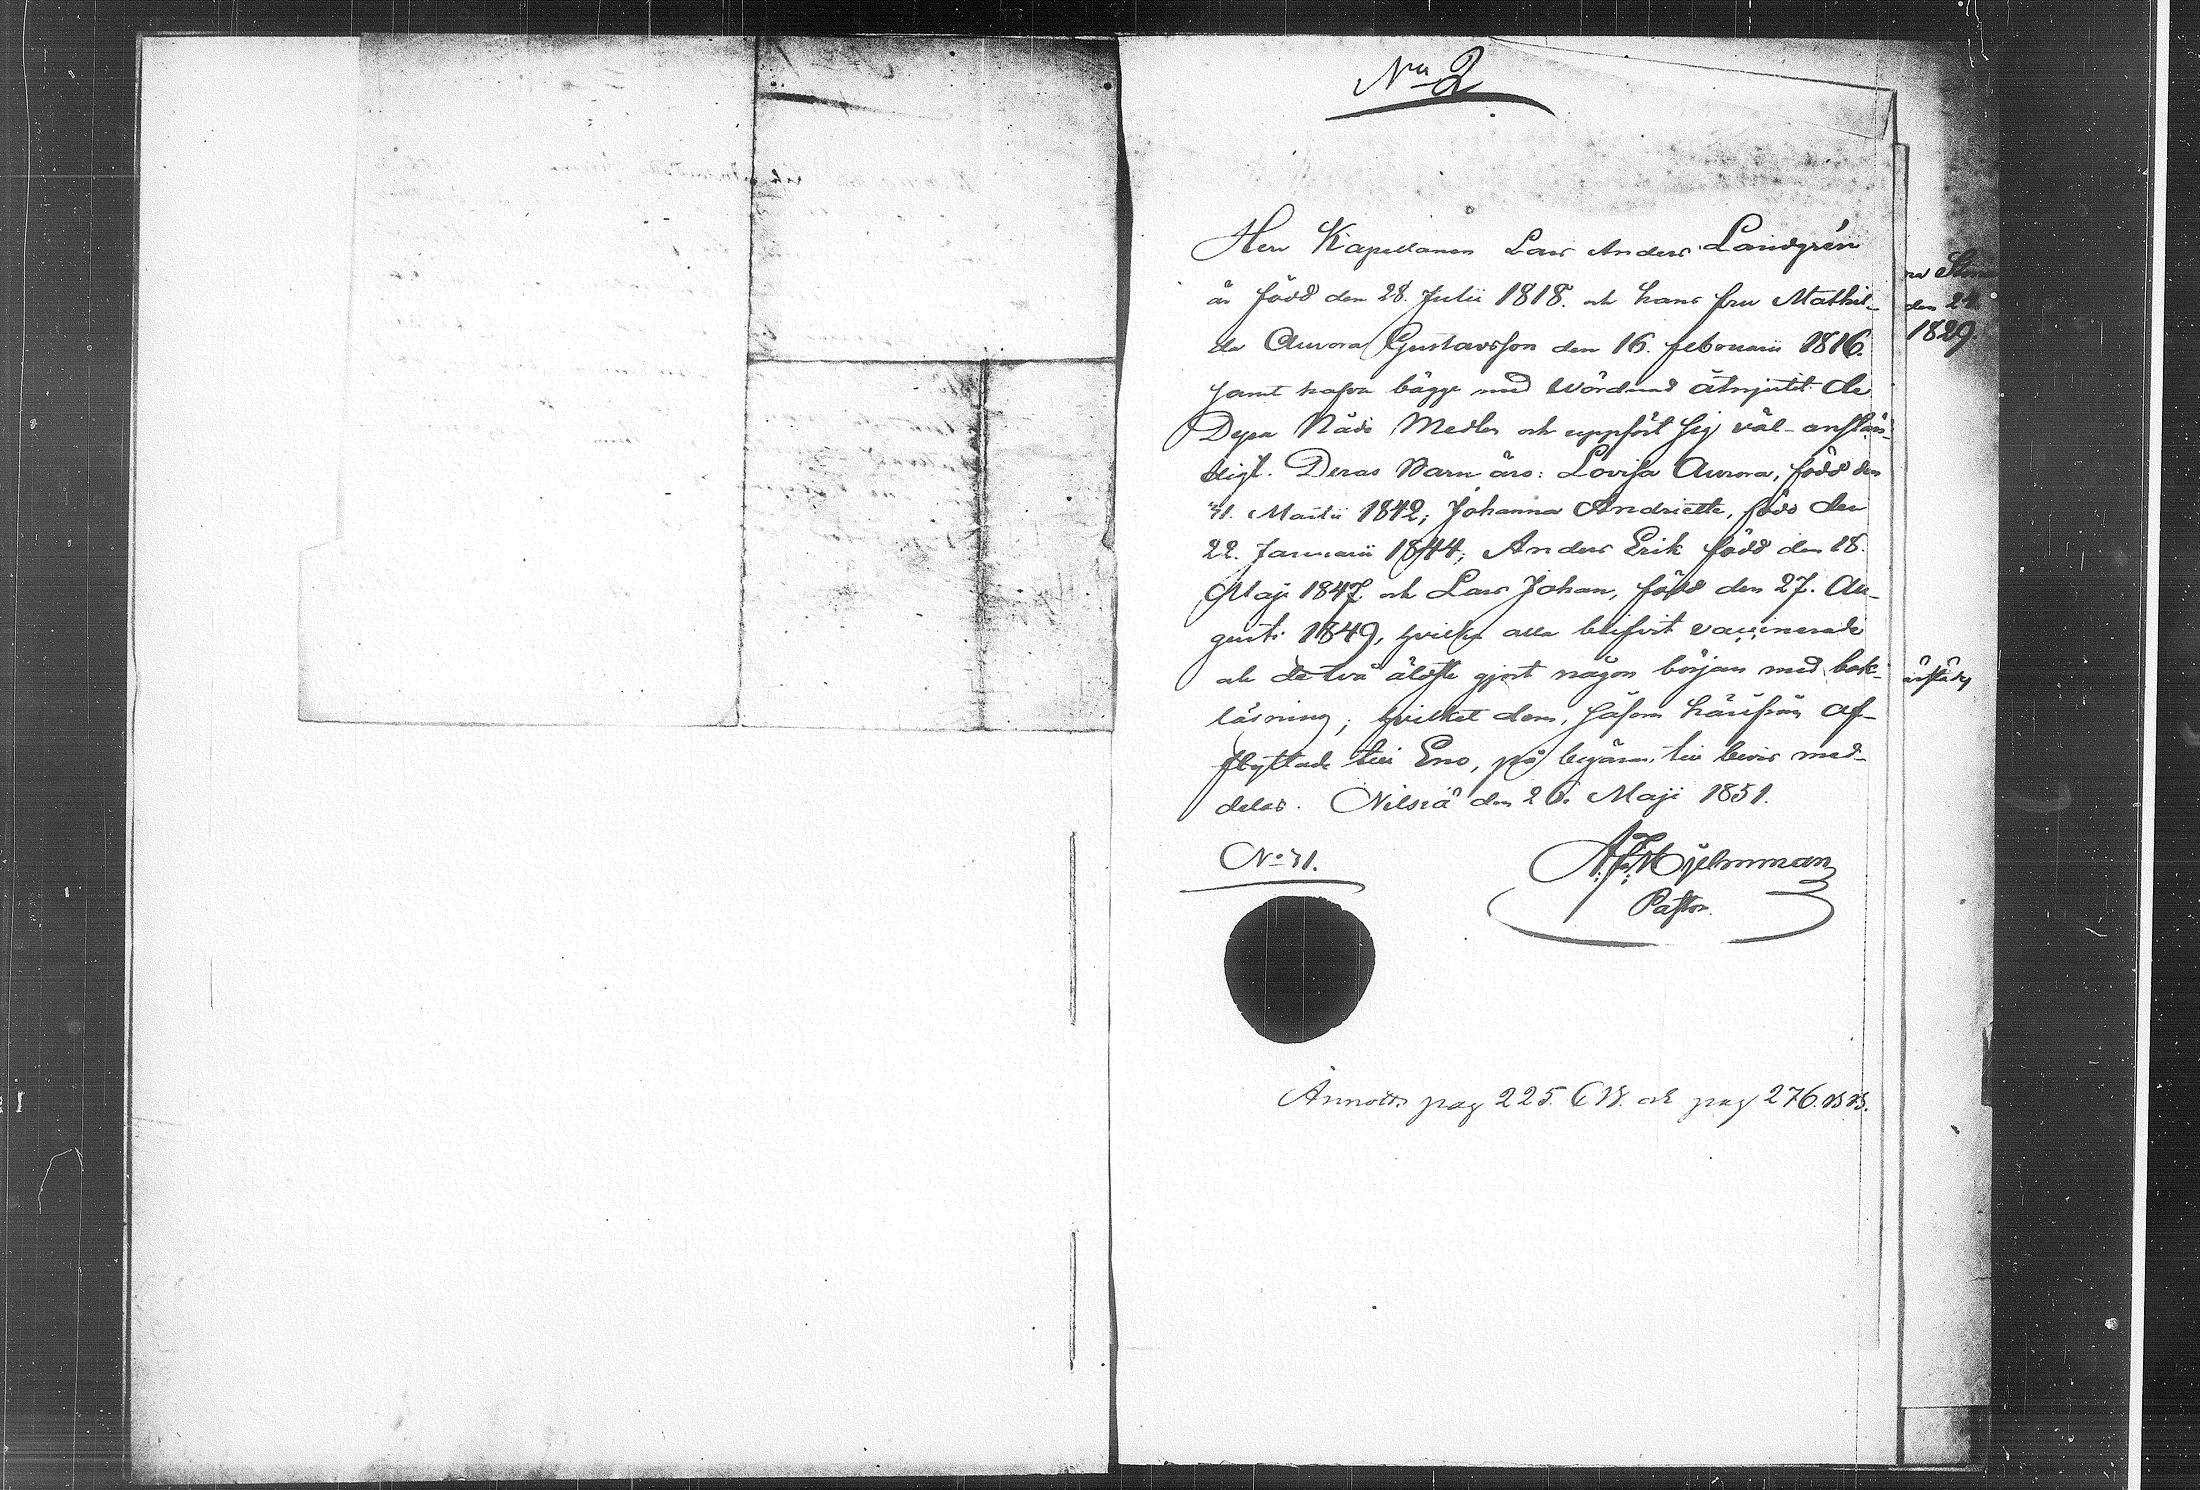 No 2
Herr Kapellanen Lars Anders Landgrén
är född den 28. Julii 1818. och hans fru Mathil-
da Aurora Gustavsson den 16. februarii 1816.
samt hafva bägge med wördnad åtnjutit de
Dyra Nåde Medlen och uppfört sig väl-anstän-
digt. Deras Barn äro: Lovisa Aurora, född den
31. Martii 1842; Johanna Andriette, född den
22. Januarii 1844; Anders Erik född den 18.
Maji 1847 och Lars Johan, född den 27. Au-
gusti 1849, hvilka alla blifvit vaccinerade
och de två äldste gjort någon början med bok-
läsning; hvilket dem, såsom härifrån af-
flyttade till Eno, på begäran, till bevis med-
delas. Nilsiä den 26. Maji 1851.
No 31.
A. F. Hjelmman
Pastor.
Annoter. pag 225. CB. och pag 276. BB.
den 24
1829.